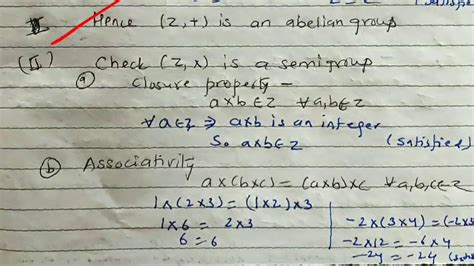 Hence (Z,+) is an abelian group
(II) Check (Z,×) is a semigroup
(a) Closure property –
a×b∈Z ∀a,b∈Z
∀a∈Z ⇒ a×b is an integer
So a×b∈Z (satisfied)
(b) Associativity
a×(b×c)=(a×b)×c ∀a,b,c∈Z
1×(2×3)=(1×2)×3
1×6 = 2×3
6=6
-2×(3×4)=(-2×3
-2×12=-6×4
-24=-24